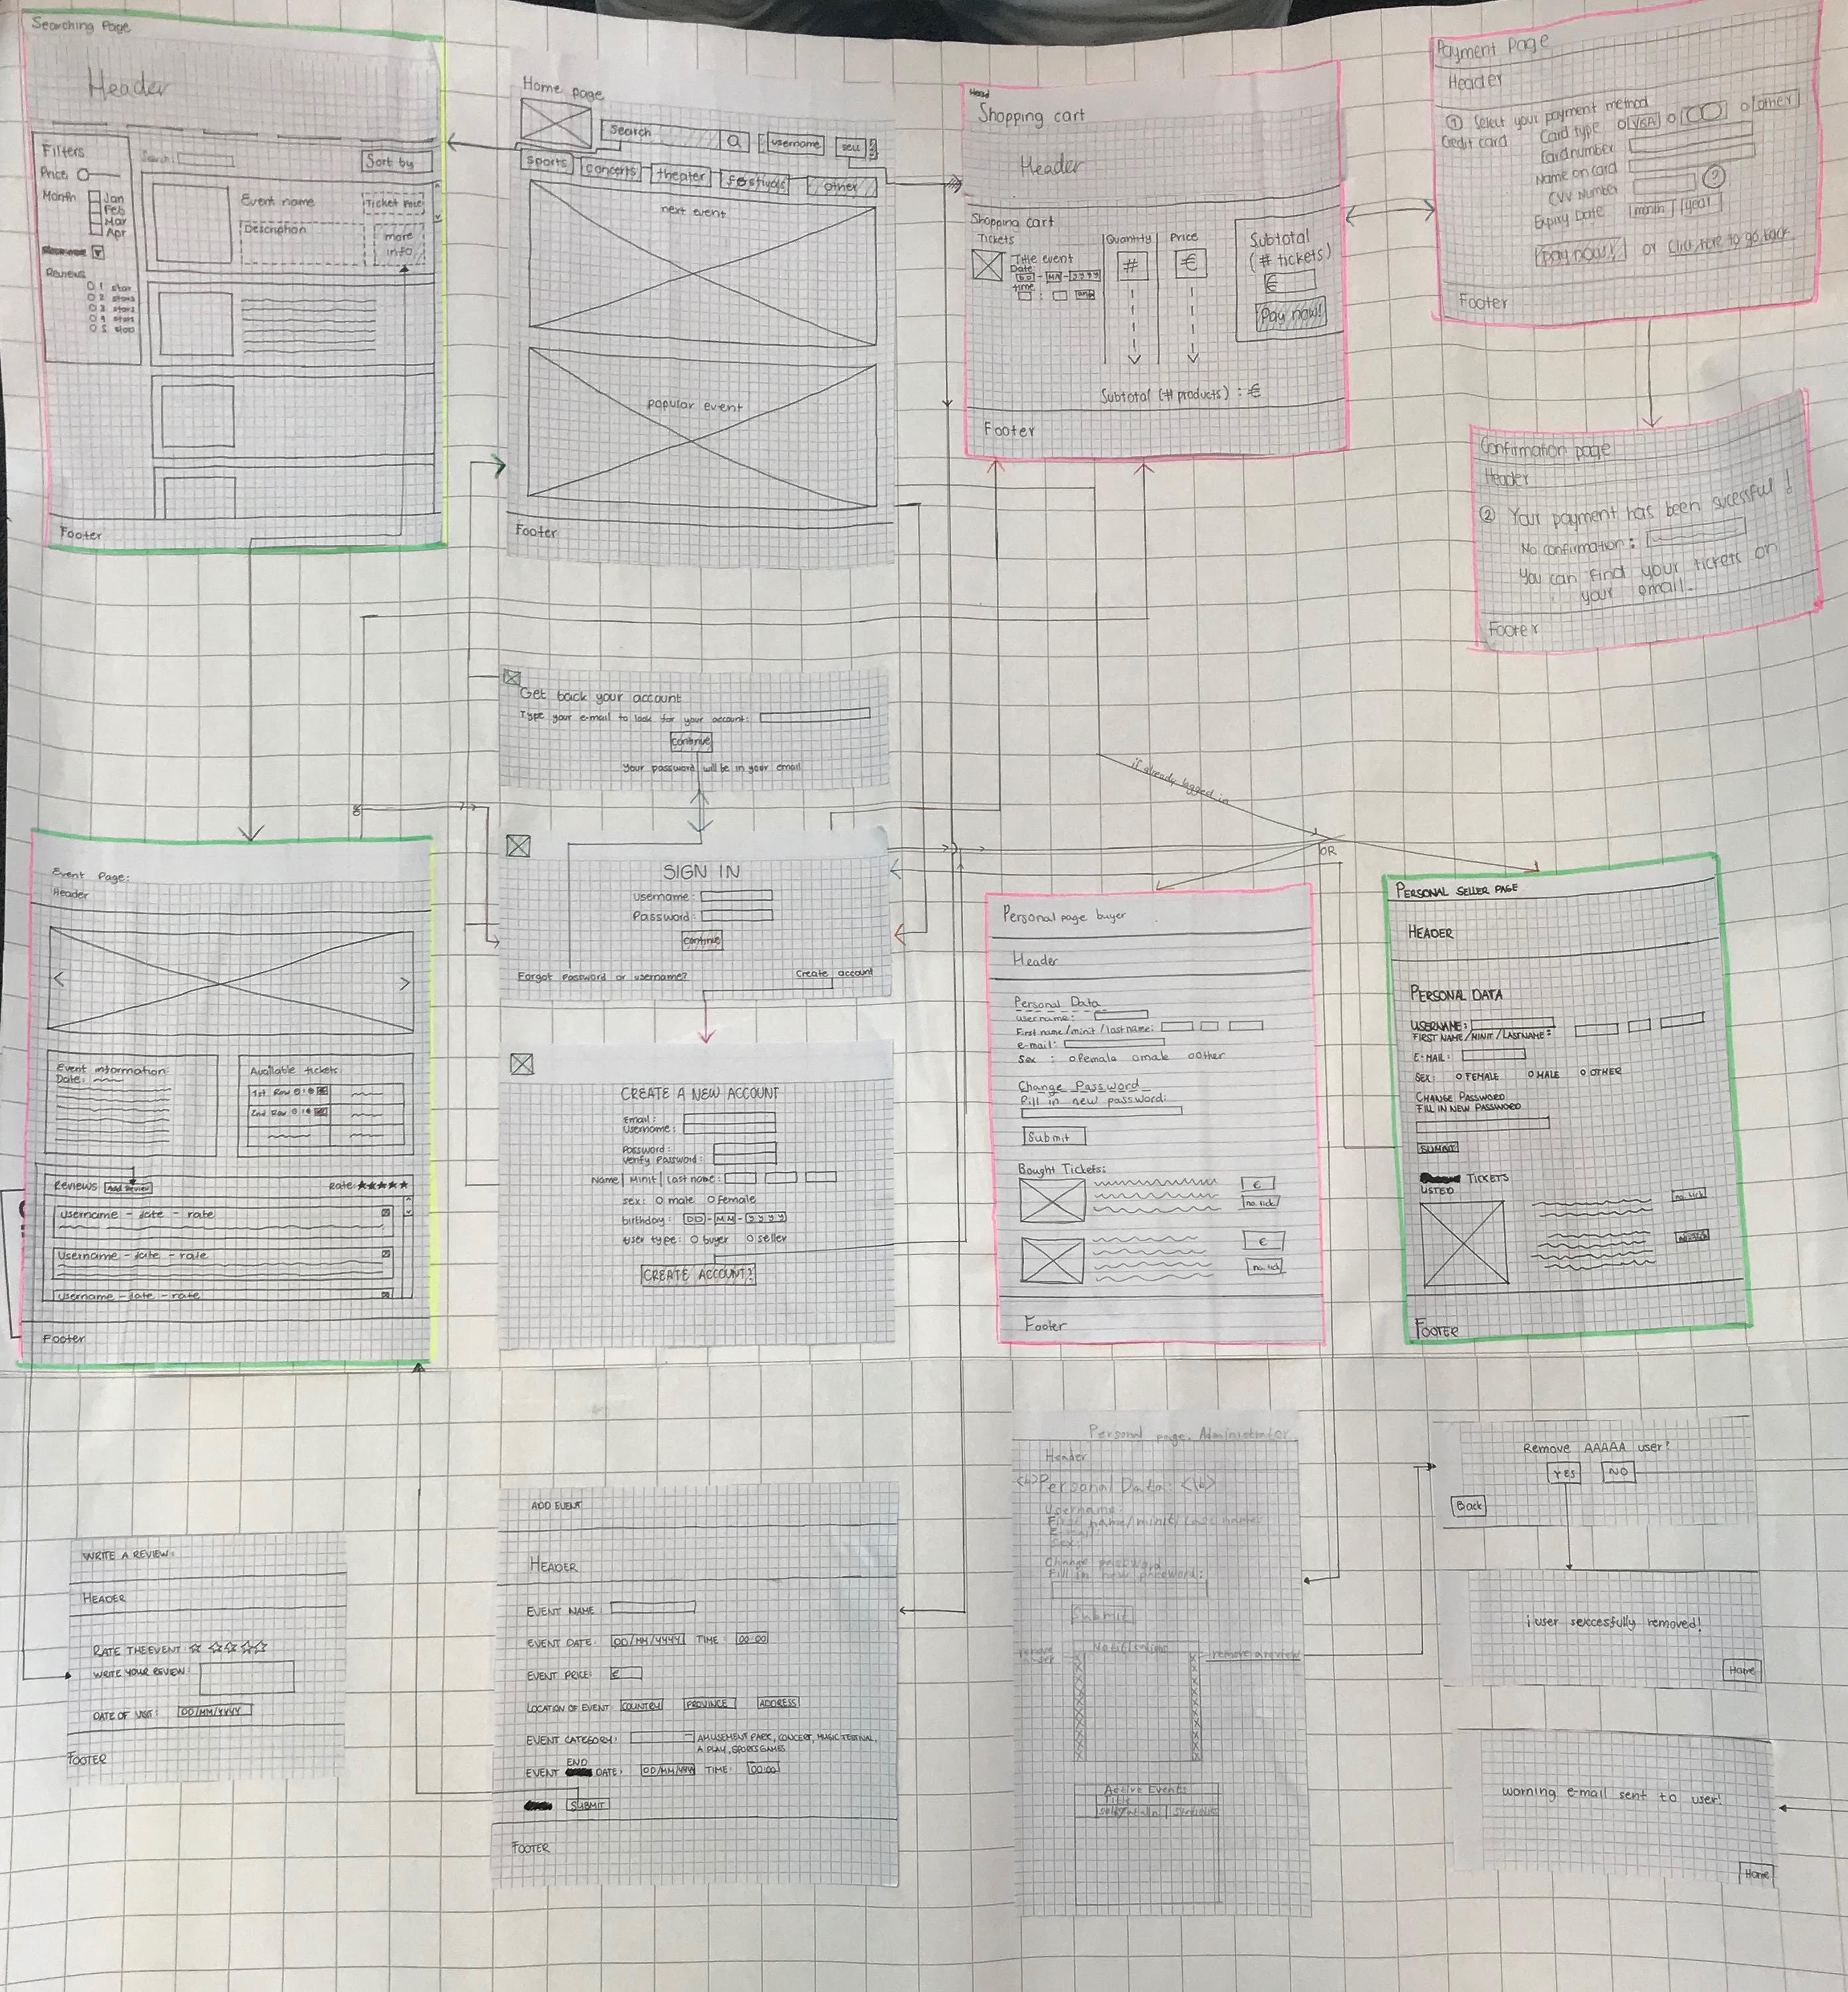 Searching Page
Header
Filters
Price
Month
Jan
Feb
Mar
Apr
Reviews
1 star
2 stars
3 stars
4 stars
5 stars
Search:
Sort by
Event name
Ticket Price
Description
more info
Footer
Home page
Search
username
sell
sports
concerts
theater
festivals
other
next event
popular event
Footer
Head
Shopping cart
Header
Shopping cart
Tickets
Quantity
Price
Title event
Date
DD - MM - YYYY
time
#
€
Subtotal
(# tickets)
€
Pay now!
Subtotal (# products) : €
Footer
Payment Page
Header
① Select your payment method
Credit card
Card type
VISA
other
Card number
Name on card
CVV Number
?
Expiry Date
month
year
pay now!
or click here to go back
Footer
Confirmation page
Header
② Your payment has been sucessful!
No confirmation:
You can find your tickets on
your email.
Footer
Get back your account
Type your e-mail to look for your account:
continue
Your password will be in your email
if already logged in
OR
SIGN IN
username:
Password:
continue
Forgot password or username?
Create account
Event Page:
Header
Event information:
Date:
Available tickets:
1st Row
2nd Row
Reviews
Add Review
Rate: ★★★★★
Username - date - rate
Username - date - rate
Username - date - rate
Footer
CREATE A NEW ACCOUNT
Email:
Username:
Password:
Verify Password:
Name| Minit| Last name:
sex: o male o female
birthday: DD - MM - YYYY
user type: o buyer o seller
CREATE ACCOUNT!
Personal page buyer
Header
Personal Data
username:
First name/minit/lastname:
e-mail:
Sex : o Female o male o Other
Change Password
Fill in new password:
Submit
Bought Tickets:
€
no. tick
€
no. tick
Footer
PERSONAL SELLER PAGE
HEADER
PERSONAL DATA
USERNAME:
FIRST NAME/MINIT/LASTNAME:
E-MAIL:
SEX: o FEMALE o MALE o OTHER
CHANGE PASSWORD
FILL IN NEW PASSWORD
SUBMIT
TICKETS
LISTED
no. tick
FOOTER
WRITE A REVIEW:
HEADER
RATE THE EVENT:
WRITE YOUR REVIEW:
DATE OF VISIT: DD/MM/YYYY
FOOTER
ADD EVENT
HEADER
EVENT NAME
EVENT DATE: DD/MM/YYYY TIME: 00:00
EVENT PRICE: €
LOCATION OF EVENT: COUNTRY PROVINCE ADDRESS
EVENT CATEGORY:
AMUSEMENT PARK, CONCERT, MUSIC FESTIVAL,
A PLAY, SPORTS GAMES
END
EVENT DATE: DD/MM/YYYY TIME: 00:00
SUBMIT
FOOTER
Personal page. Administrator
Header
Personal Data:
Username:
First name/minit/Last name:
E-mail:
Sex:
Change password
Fill in new password:
Submit
Notifications
remove user
remove a review
Active Events
Title
Remove AAAAA user?
YES
NO
Back
¡user succesfully removed!
Home
warning e-mail sent to user!
Home